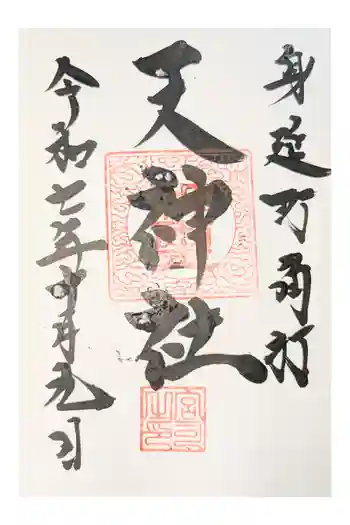 身延町角打
天神社
令和七年十月九日
宮司之印